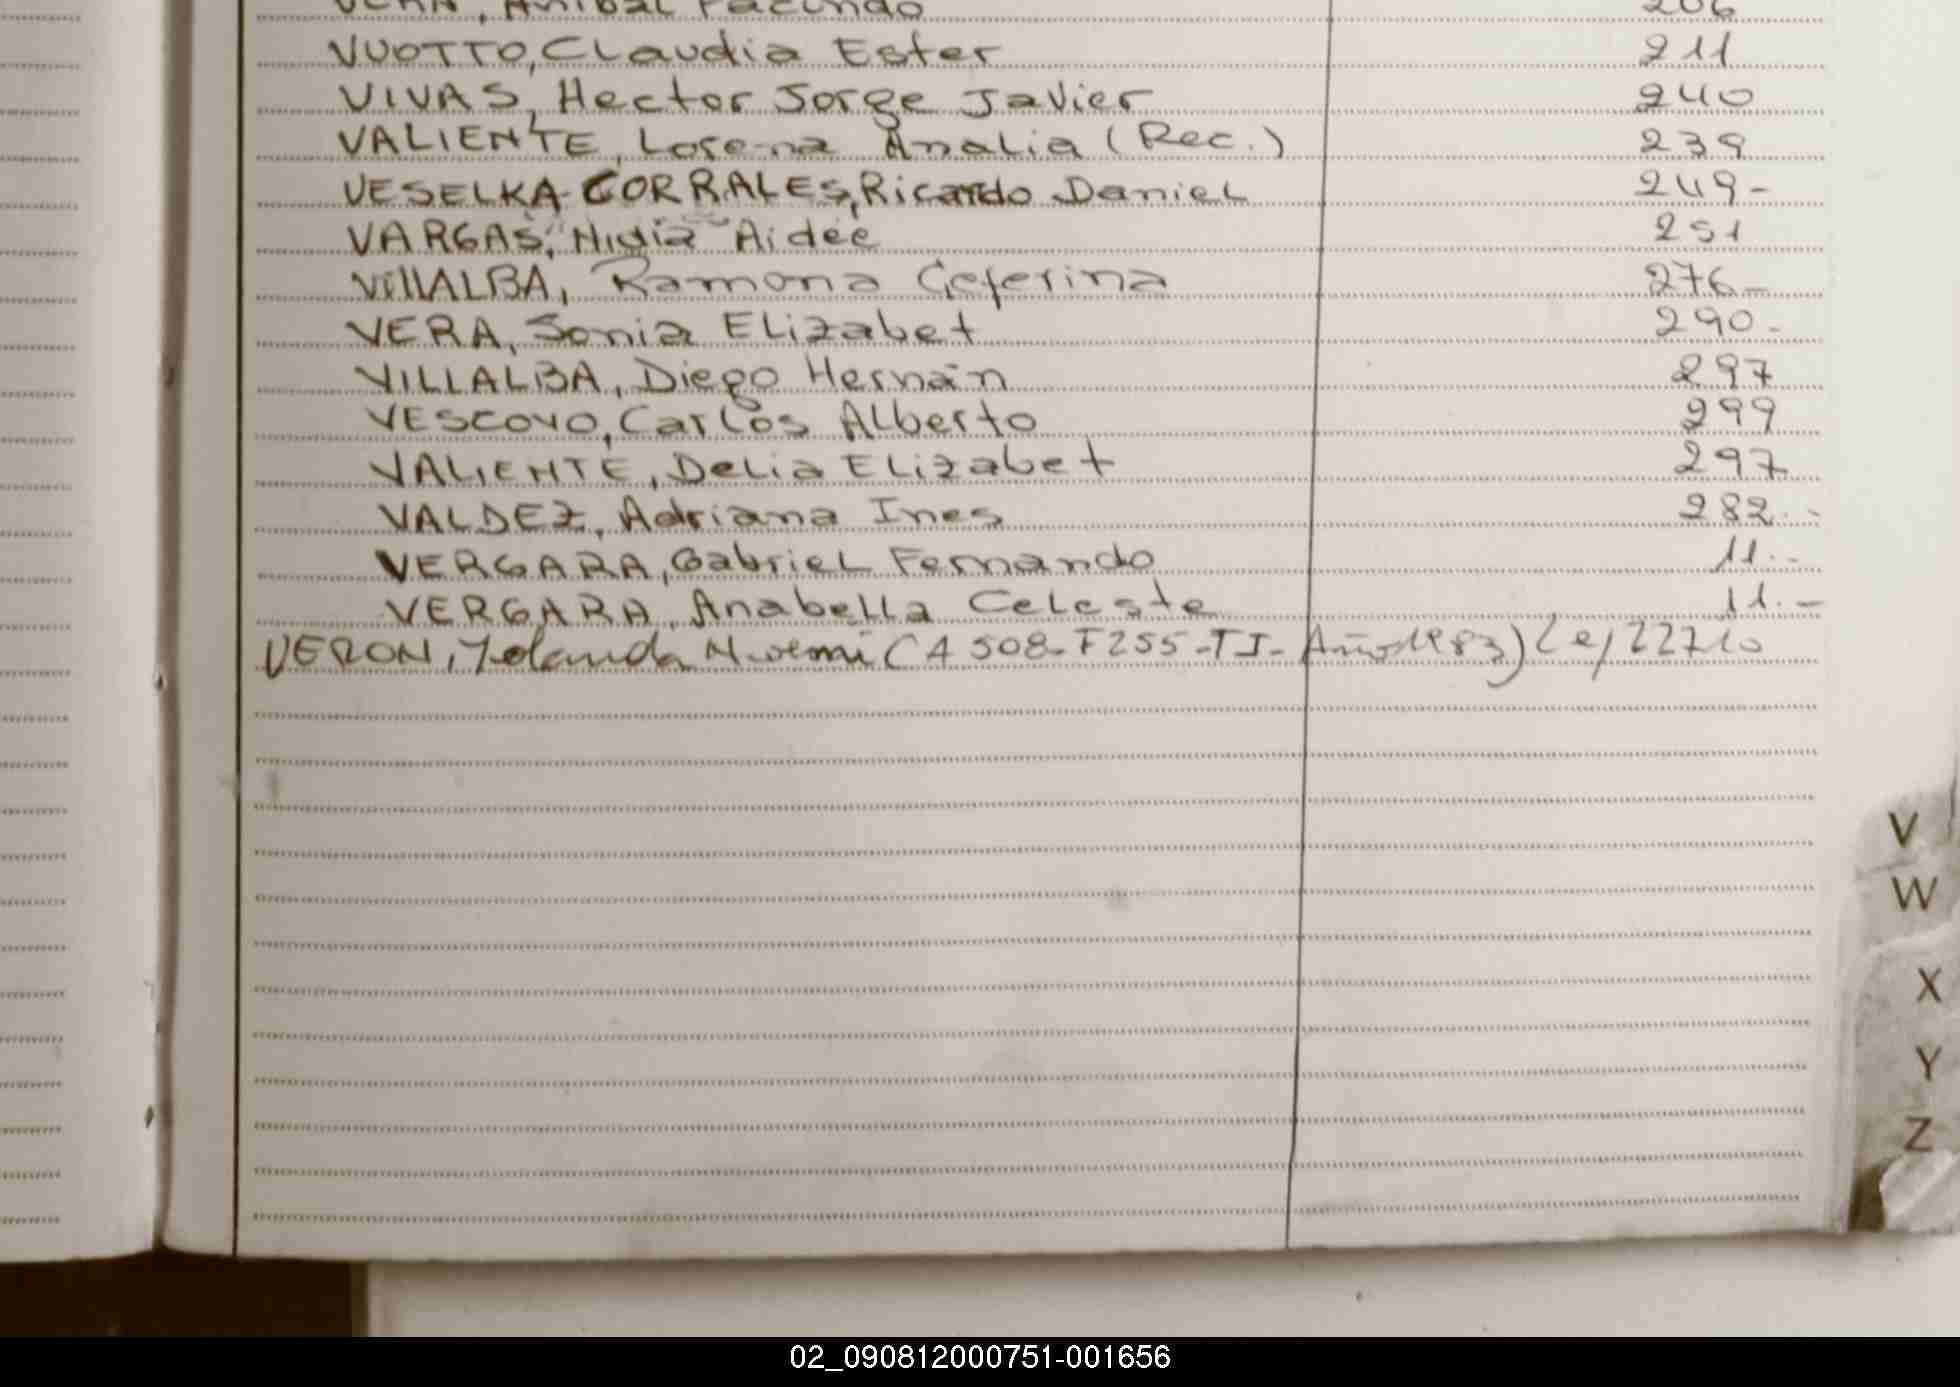 Anibal Facundo 206
VUOTTO, Claudia Ester 211
VIVAS, Hector Jorge Javier 240
VALIENTE, Lorena Analia (Rec.) 239
VESELKA-CORRALES, Ricardo Daniel 249-
VARGAS, Nidia Aidée 251
VillALBA, Ramona Ceferina 276-
VERA, Sonia Elizabet 290-
VILLALBA, Diego Hernán 297
VESCOVO, Carlos Alberto 299
VALIENTE, Delia Elizabet 297
VALDEZ, Adriana Ines 282.-
VERGARA, Gabriel Fernando 11.-
VERGARA, Anabella Celeste 11.-
VERON, Yolanda Noemi (A 508-F255-TI-Año 1983)
V
W
X
Y
Z
02_090812000751-001656